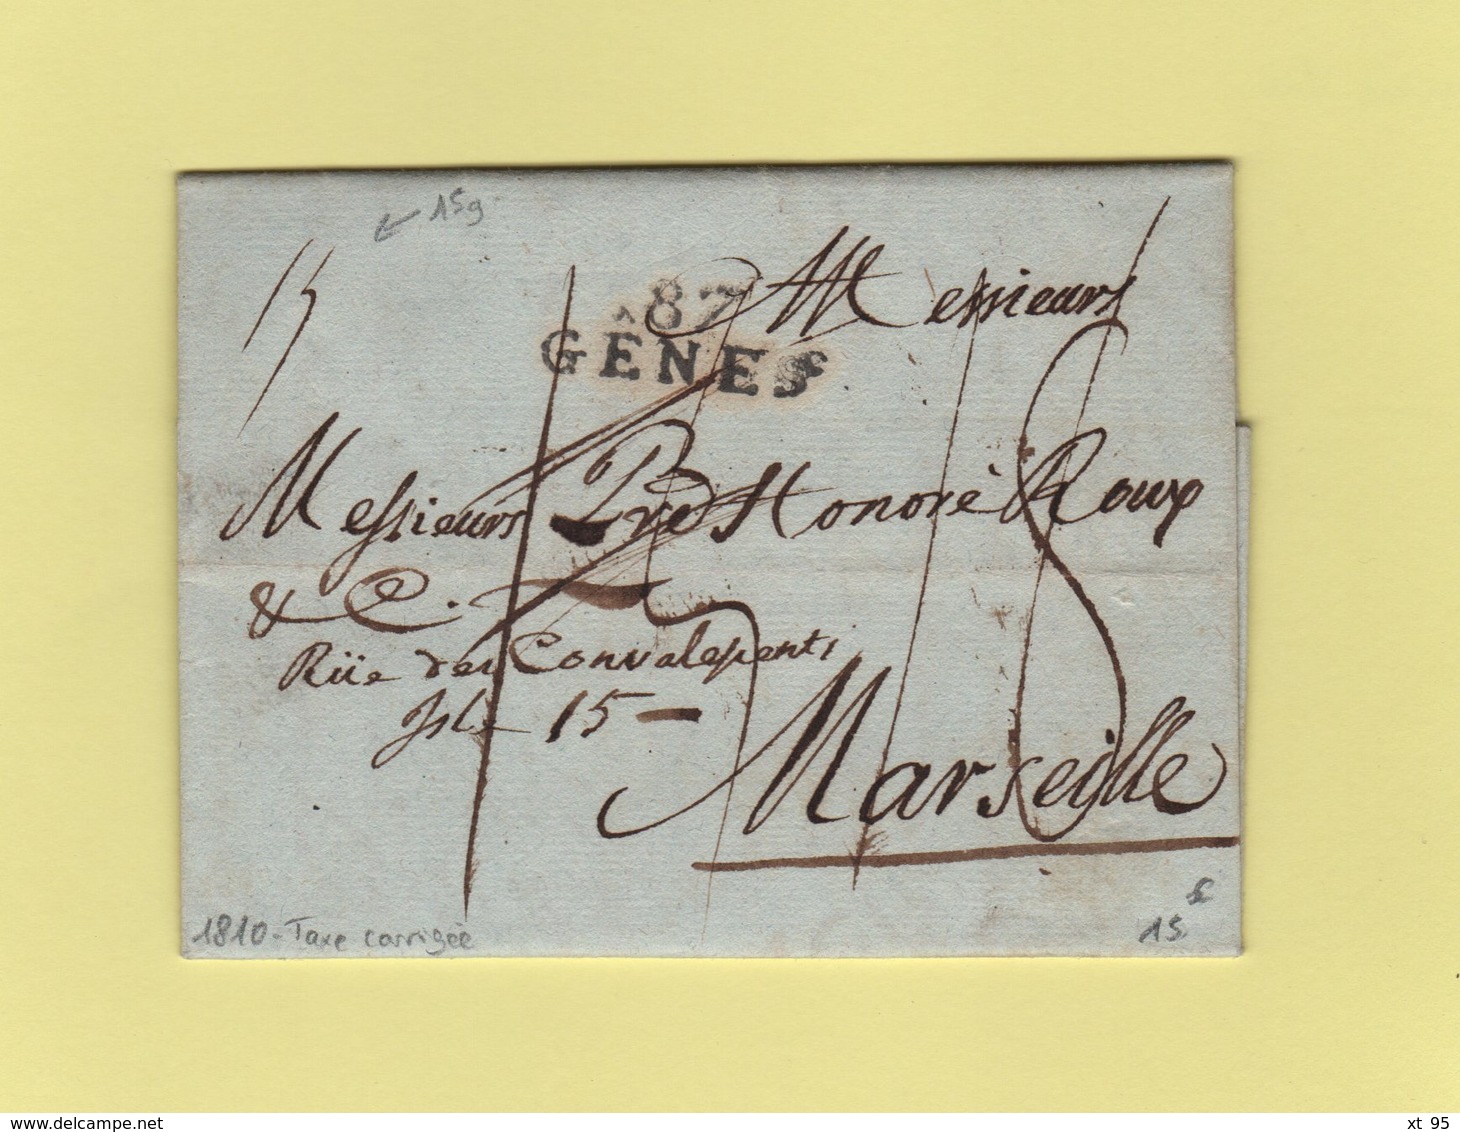 15g
Messieurs
87
GENES
Messieurs Pre Honoré Roux
& C.
Rüe des Convalescents
Isle 15 —
Marseille
1810 - Taxe corrigée
15
delcampe.net
xt 95